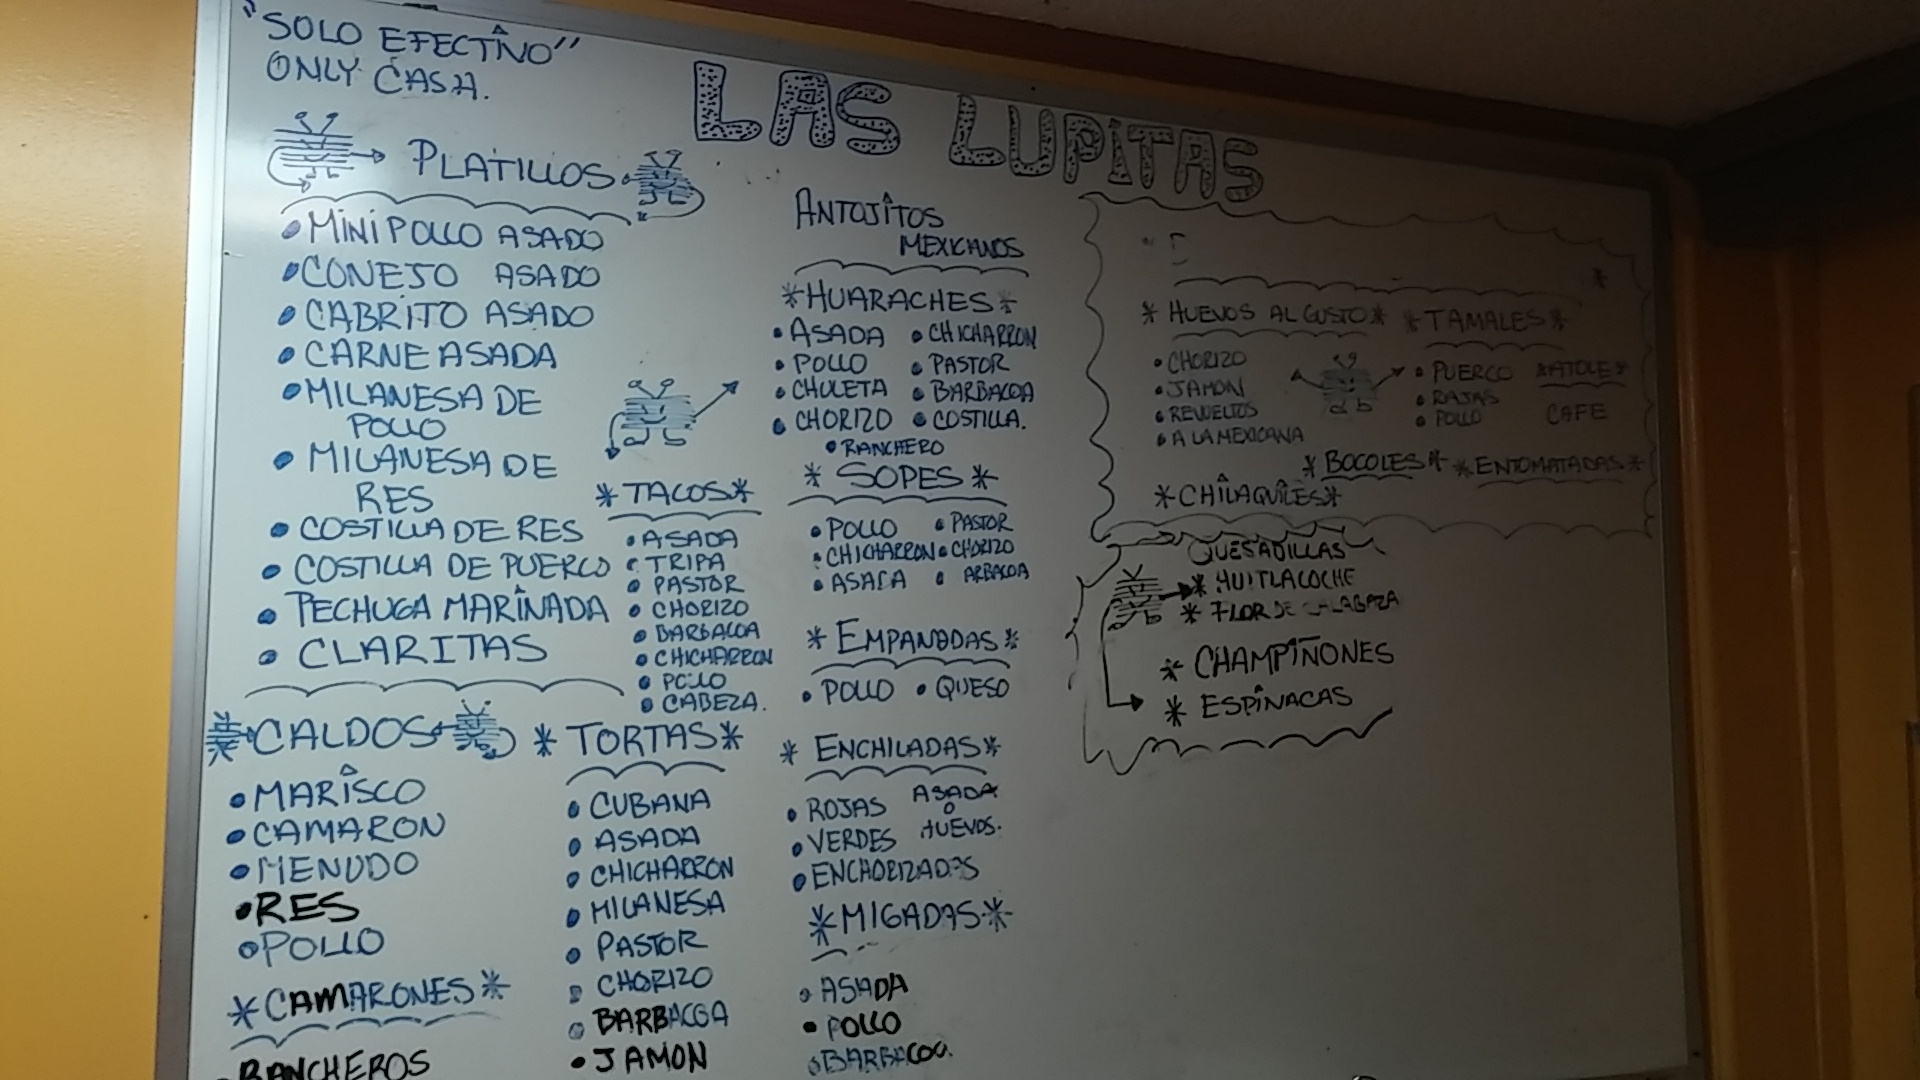 "SOLO EFECTIVO"
ONLY CASH.
LAS LUPITAS
PLATILLOS
• MINI POLLO ASADO
• CONEJO ASADO
• CABRITO ASADO
• CARNE ASADA
• MILANESA DE
POLLO
• MILANESA DE
RES
• COSTILLA DE RES
• COSTILLA DE PUERCO
• PECHUGA MARINADA
• CLARITAS
CALDOS
• MARISCO
• CAMARON
• MENUDO
• RES
• POLLO
*CAMARONES*
• RANCHEROS
*TACOS*
• ASADA
• TRIPA
• PASTOR
• CHORIZO
• BARBACOA
• CHICHARRON
• POLLO
• CABEZA.
* TORTAS*
• CUBANA
• ASADA
• CHICHARRON
• MILANESA
• PASTOR
• CHORIZO
• BARBACOA
• JAMON
ANTOJITOS
MEXICANOS
*HUARACHES*
• ASADA • CHICHARRON
• POLLO • PASTOR
• CHULETA • BARBACOA
• CHORIZO • COSTILLA.
• RANCHERO
* SOPES *
• POLLO • PASTOR
• CHICHARRON • CHORIZO
• ASADA • ARBACOA
* EMPANADAS*
• POLLO • QUESO
* ENCHILADAS*
• ROJAS ASADA
O
• VERDES HUEVOS.
• ENCHORIZADAS
*MIGADAS*
• ASADA
• POLLO
• BARBACOA.
* HUEVOS AL GUSTO*
• CHORIZO
• JAMON
• REVUELTOS
• A LA MEXICANA
* TAMALES*
• PUERCO
• RAJAS
• POLLO
*ATOLE*
CAFE
* BOCOLES* *ENTOMATADAS*
*CHILAQUILES*
QUESADILLAS
* HUITLACOCHE
* FLOR DE CALABAZA
* CHAMPIÑONES
* ESPINACAS